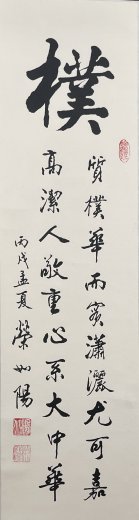 樸
質樸華而實瀟灑尤可嘉
高潔人敬重心系大中華
丙戌孟夏榮如陽